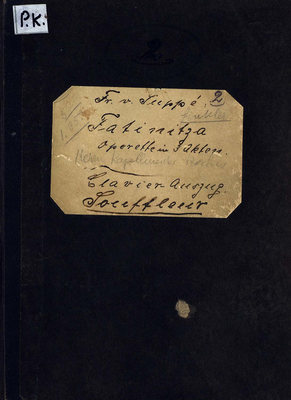 P.K.
Fr. v. Suppé. 2
Fatinitza
Operette in 3 Akten.
Herrn Kapellmeister
Clavier-Auszug.
Souffleur